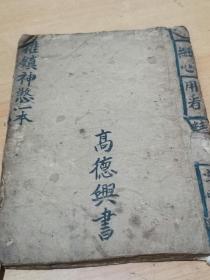 細心用看
雜鎮神憋一本
高德興書